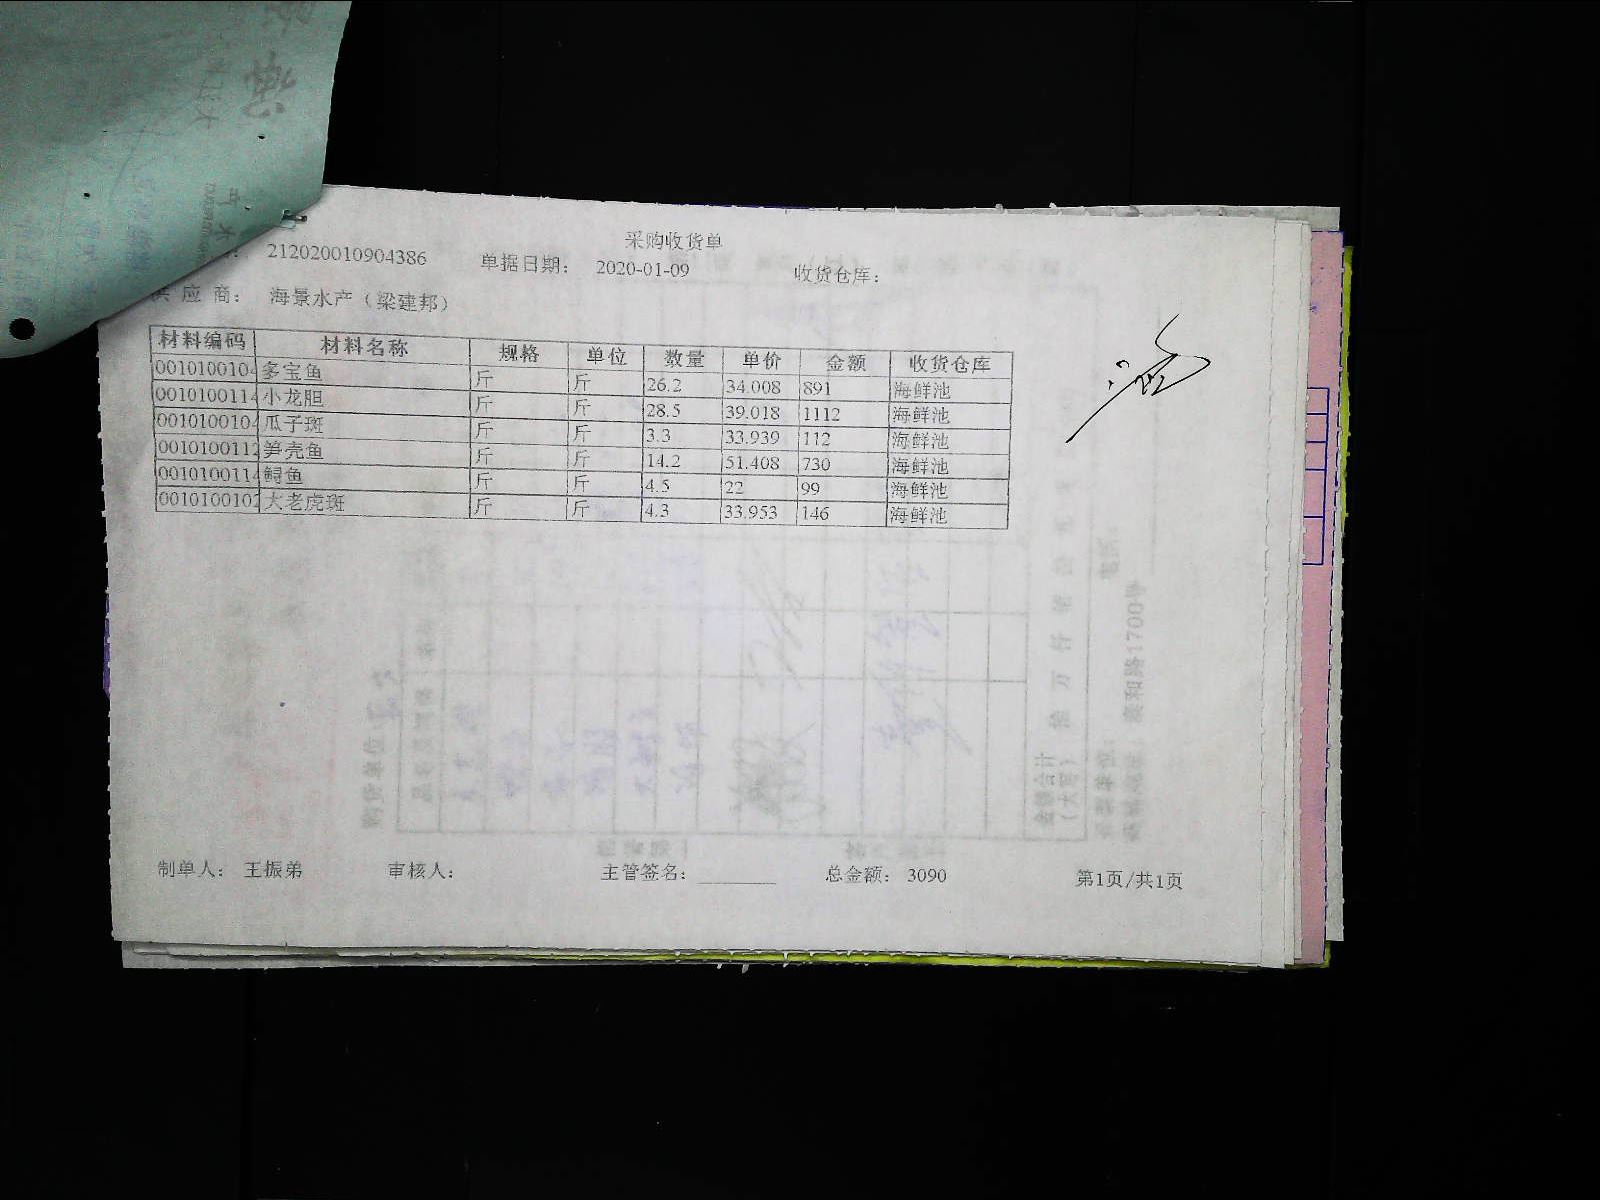 采购收货单
212020010904386 单据日期： 2020-01-09 收货仓库：
供 应 商： 海景水产（梁建邦）
材料编码 材料名称 规格 单位 数量 单价 金额 收货仓库
0010100104 多宝鱼 斤 斤 26.2 34.008 891 海鲜池
0010100114 小龙胆 斤 斤 28.5 39.018 1112 海鲜池
0010100104 瓜子斑 斤 斤 3.3 33.939 112 海鲜池
0010100112 笋壳鱼 斤 斤 14.2 51.408 730 海鲜池
0010100114 鲟鱼 斤 斤 4.5 22 99 海鲜池
0010100102 大老虎斑 斤 斤 4.3 33.953 146 海鲜池
制单人： 王振弟 审核人： 主管签名： 总金额： 3090 第1页/共1页